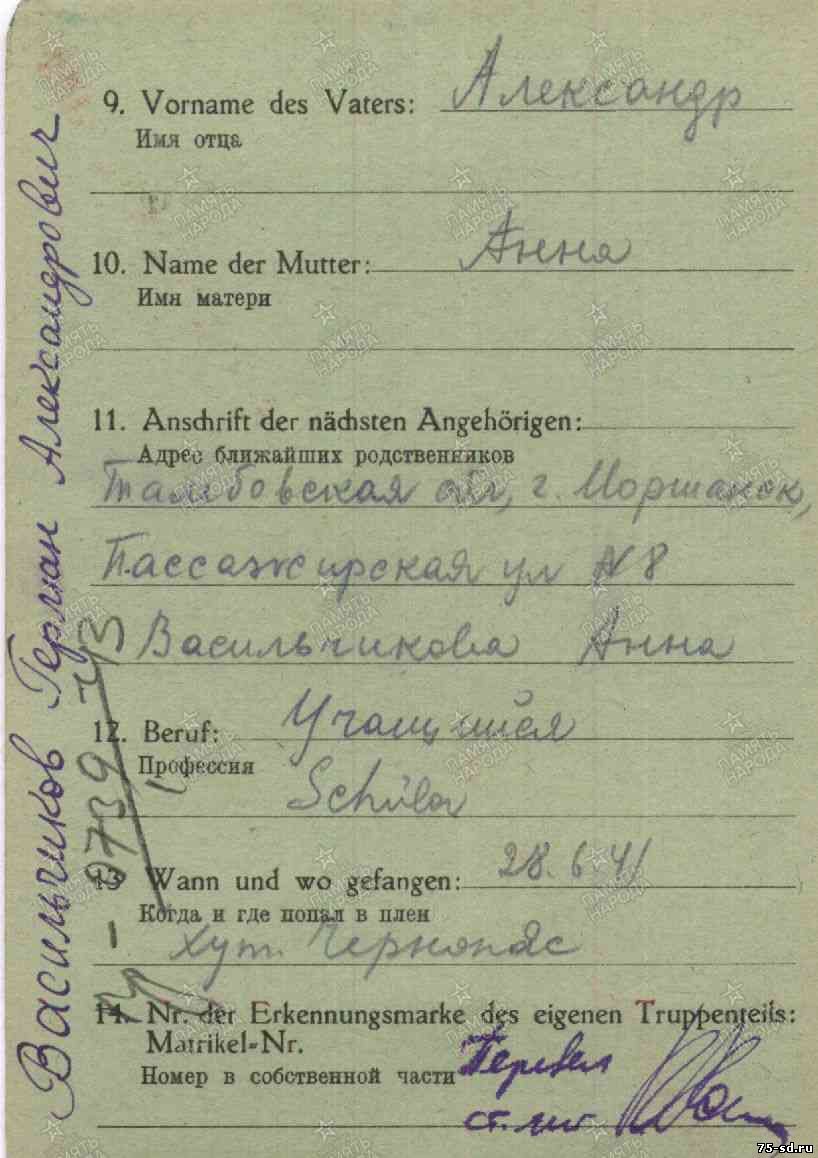 9. Vorname des Vaters: Александр
Имя отца
10. Name der Mutter: Анна
Имя матери
11. Anschrift der nächsten Angehörigen:
Адрес ближайших родственников
Тамбовская обл, г. Моршанск,
Пассажирская ул N 8
Васильчикова Анна
12. Beruf: Учащийся
Профессия
Schüler
13 Wann und wo gefangen: 28.6.41
Когда и где попал в плен
Хут. Чернопяс
14. Nr. der Erkennungsmarke des eigenen Truppenteils:
Matrikel-Nr.
Номер в собственной части
Перевел
ст. лит
Васильчиков Герман Александрович
ПАМЯТЬ НАРОДА
75-sd.ru